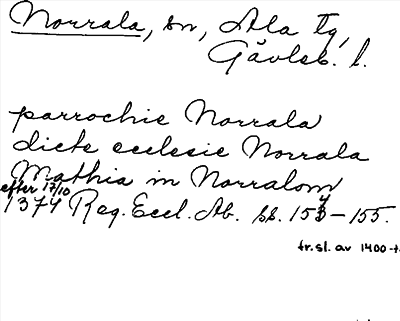 Norrala, sn, Ala tg,
Gävleb. l.
parrochie Norrala
dicte ecclesie Norrala
Mathia in Norralom
efter 17/10
1374 Reg. Eccl. Ab. ss. 154–155.
fr. sl. av 1400-t.